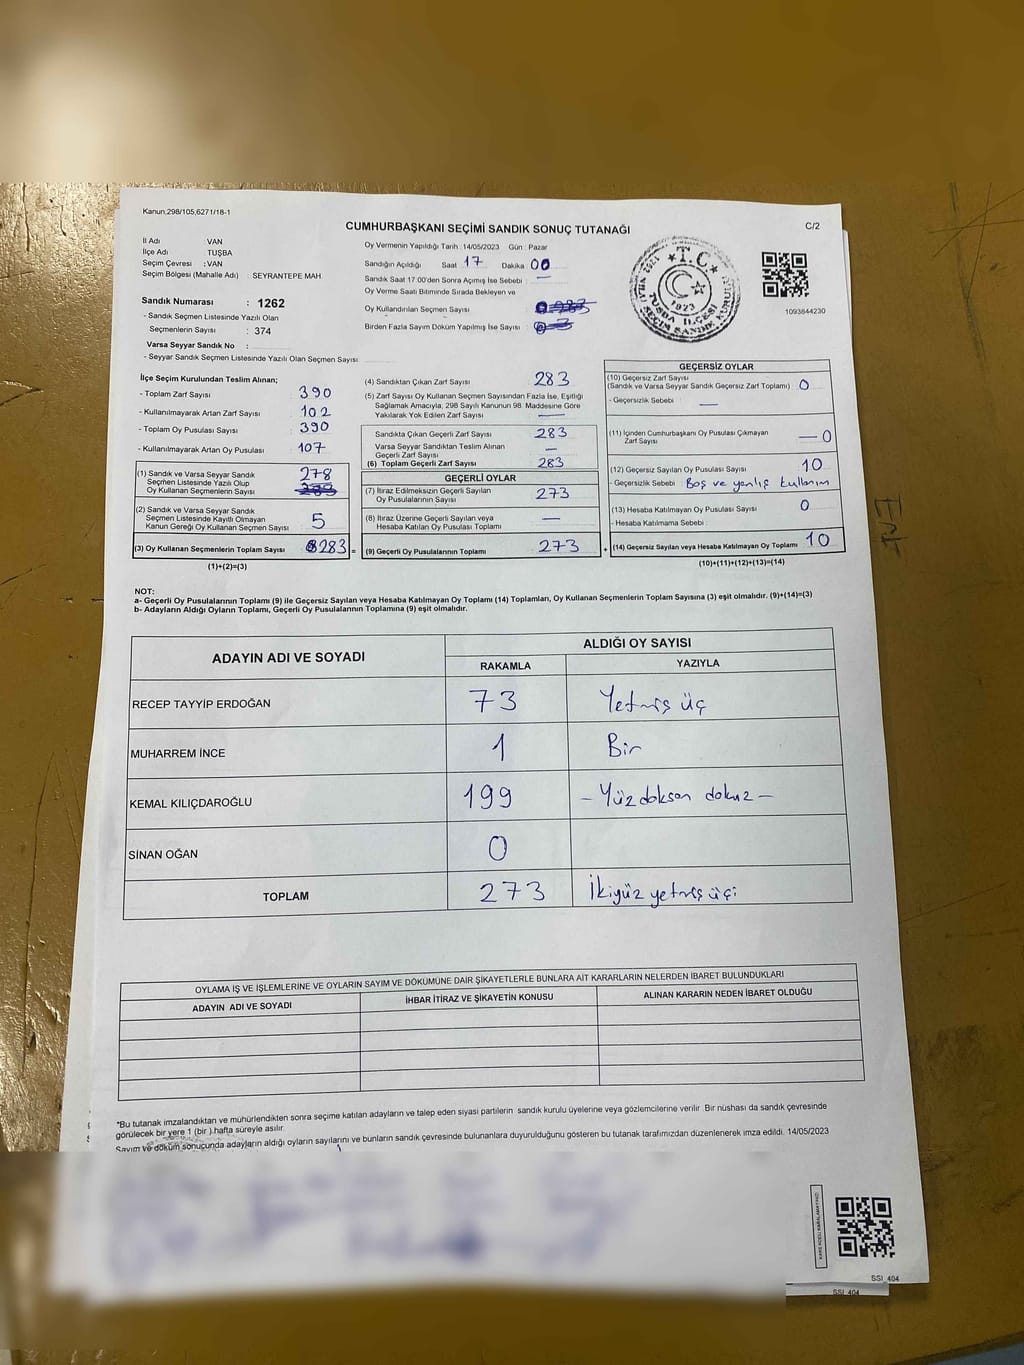 Kanun;298/105,6271/18-1
CUMHURBAŞKANI SEÇİMİ SANDIK SONUÇ TUTANAĞI
C/2
İl Adı VAN
İlçe Adı TUŞBA
Seçim Çevresi : VAN
Seçim Bölgesi (Mahalle Adı) : SEYRANTEPE MAH
Sandık Numarası : 1262
- Sandık Seçmen Listesinde Yazılı Olan
Seçmenlerin Sayısı : 374
Varsa Seyyar Sandık No :
- Seyyar Sandık Seçmen Listesinde Yazılı Olan Seçmen Sayısı
Oy Vermenin Yapıldığı Tarih : 14/05/2023 Gün : Pazar
Sandığın Açıldığı Saat 17 Dakika 00
Sandık Saat 17:00'den Sonra Açımış İse Sebebi : —
Oy Verme Saati Bitiminde Sırada Bekleyen ve
Oy Kullandırılan Seçmen Sayısı
Birden Fazla Sayım Döküm Yapılmış İse Sayısı :
T.C.
TUŞBA İLÇESİ
1923
1093844230
İlçe Seçim Kurulundan Teslim Alınan;
- Toplam Zarf Sayısı : 390
- Kullanılmayarak Artan Zarf Sayısı : 102
- Toplam Oy Pusulası Sayısı : 390
- Kullanılmayarak Artan Oy Pusulası : 107
(1) Sandık ve Varsa Seyyar Sandık
Seçmen Listesinde Yazılı Olup
Oy Kullanan Seçmenlerin Sayısı 278
(2) Sandık ve Varsa Seyyar Sandık
Seçmen Listesinde Kayıtlı Olmayan
Kanun Gereği Oy Kullanan Seçmen Sayısı 5
(3) Oy Kullanan Seçmenlerin Toplam Sayısı 283 =
(1)+(2)=(3)
(4) Sandıktan Çıkan Zarf Sayısı 283
(5) Zarf Sayısı Oy Kullanan Seçmen Sayısından Fazla İse, Eşitliği
Sağlamak Amacıyla; 298 Sayılı Kanunun 98. Maddesine Göre
Yakılarak Yok Edilen Zarf Sayısı —
Sandıkta Çıkan Geçerli Zarf Sayısı 283
Varsa Seyyar Sandıktan Teslim Alınan
Geçerli Zarf Sayısı —
(6) Toplam Geçerli Zarf Sayısı 283
GEÇERLİ OYLAR
(7) İtiraz Edilmeksizin Geçerli Sayılan
Oy Pusulalarının Sayısı 273
(8) İtiraz Üzerine Geçerli Sayılan veya
Hesaba Katılan Oy Pusulası Toplamı —
(9) Geçerli Oy Pusulalarının Toplamı 273 +
GEÇERSİZ OYLAR
(10) Geçersiz Zarf Sayısı
(Sandık ve Varsa Seyyar Sandık Geçersiz Zarf Toplamı) 0
- Geçersizlik Sebebi : —
(11) İçinden Cumhurbaşkanı Oy Pusulası Çıkmayan
Zarf Sayısı — 0
(12) Geçersiz Sayılan Oy Pusulası Sayısı 10
- Geçersizlik Sebebi : Boş ve yanlış kullanım
(13) Hesaba Katılmayan Oy Pusulası Sayısı 0
- Hesaba Katılmama Sebebi :
(14) Geçersiz Sayılan veya Hesaba Katılmayan Oy Toplamı 10
(10)+(11)+(12)+(13)=(14)
NOT:
a- Geçerli Oy Pusulalarının Toplamı (9) ile Geçersiz Sayılan veya Hesaba Katılmayan Oy Toplamı (14) Toplamları, Oy Kullanan Seçmenlerin Toplam Sayısına (3) eşit olmalıdır. (9)+(14)=(3)
b- Adayların Aldığı Oyların Toplamı, Geçerli Oy Pusulalarının Toplamına (9) eşit olmalıdır.
ADAYIN ADI VE SOYADI ALDIĞI OY SAYISI
RAKAMLA YAZIYLA
RECEP TAYYİP ERDOĞAN 73 Yetmiş üç
MUHARREM İNCE 1 Bir
KEMAL KILIÇDAROĞLU 199 - Yüzdoksan dokuz -
SİNAN OĞAN 0
TOPLAM 273 İkiyüz yetmiş üçi
OYLAMA İŞ VE İŞLEMLERİNE VE OYLARIN SAYIM VE DÖKÜMÜNE DAİR ŞİKAYETLERLE BUNLARA AİT KARARLARIN NELERDEN İBARET BULUNDUKLARI
ADAYIN ADI VE SOYADI İHBAR İTİRAZ VE ŞİKAYETİN KONUSU ALINAN KARARIN NEDEN İBARET OLDUĞU
*Bu tutanak imzalandıktan ve mühürlendikten sonra seçime katılan adayların ve talep eden siyasi partilerin sandık kurulu üyelerine veya gözlemcilerine verilir. Bir nüshası da sandık çevresinde
görülecek bir yere 1 (bir ) hafta süreyle asılır.
Sayım ve döküm sonucunda adayların aldığı oyların sayılarını ve bunların sandık çevresinde bulunanlara duyurulduğunu gösteren bu tutanak tarafımızdan düzenlenerek imza edildi. 14/05/2023
SSI_404
SSI_404